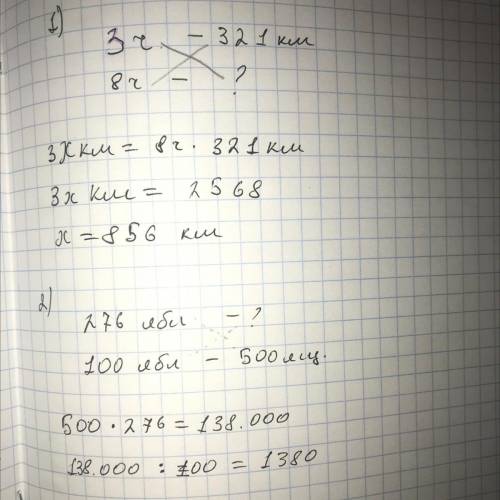 1)
3ч - 321 км
8ч - ?
3х км = 8ч · 321 км
3х км = 2568
х = 856 км
2)
276 ябл - ?
100 ябл - 500 ящ.
500 · 276 = 138.000
138.000 : 100 = 1380